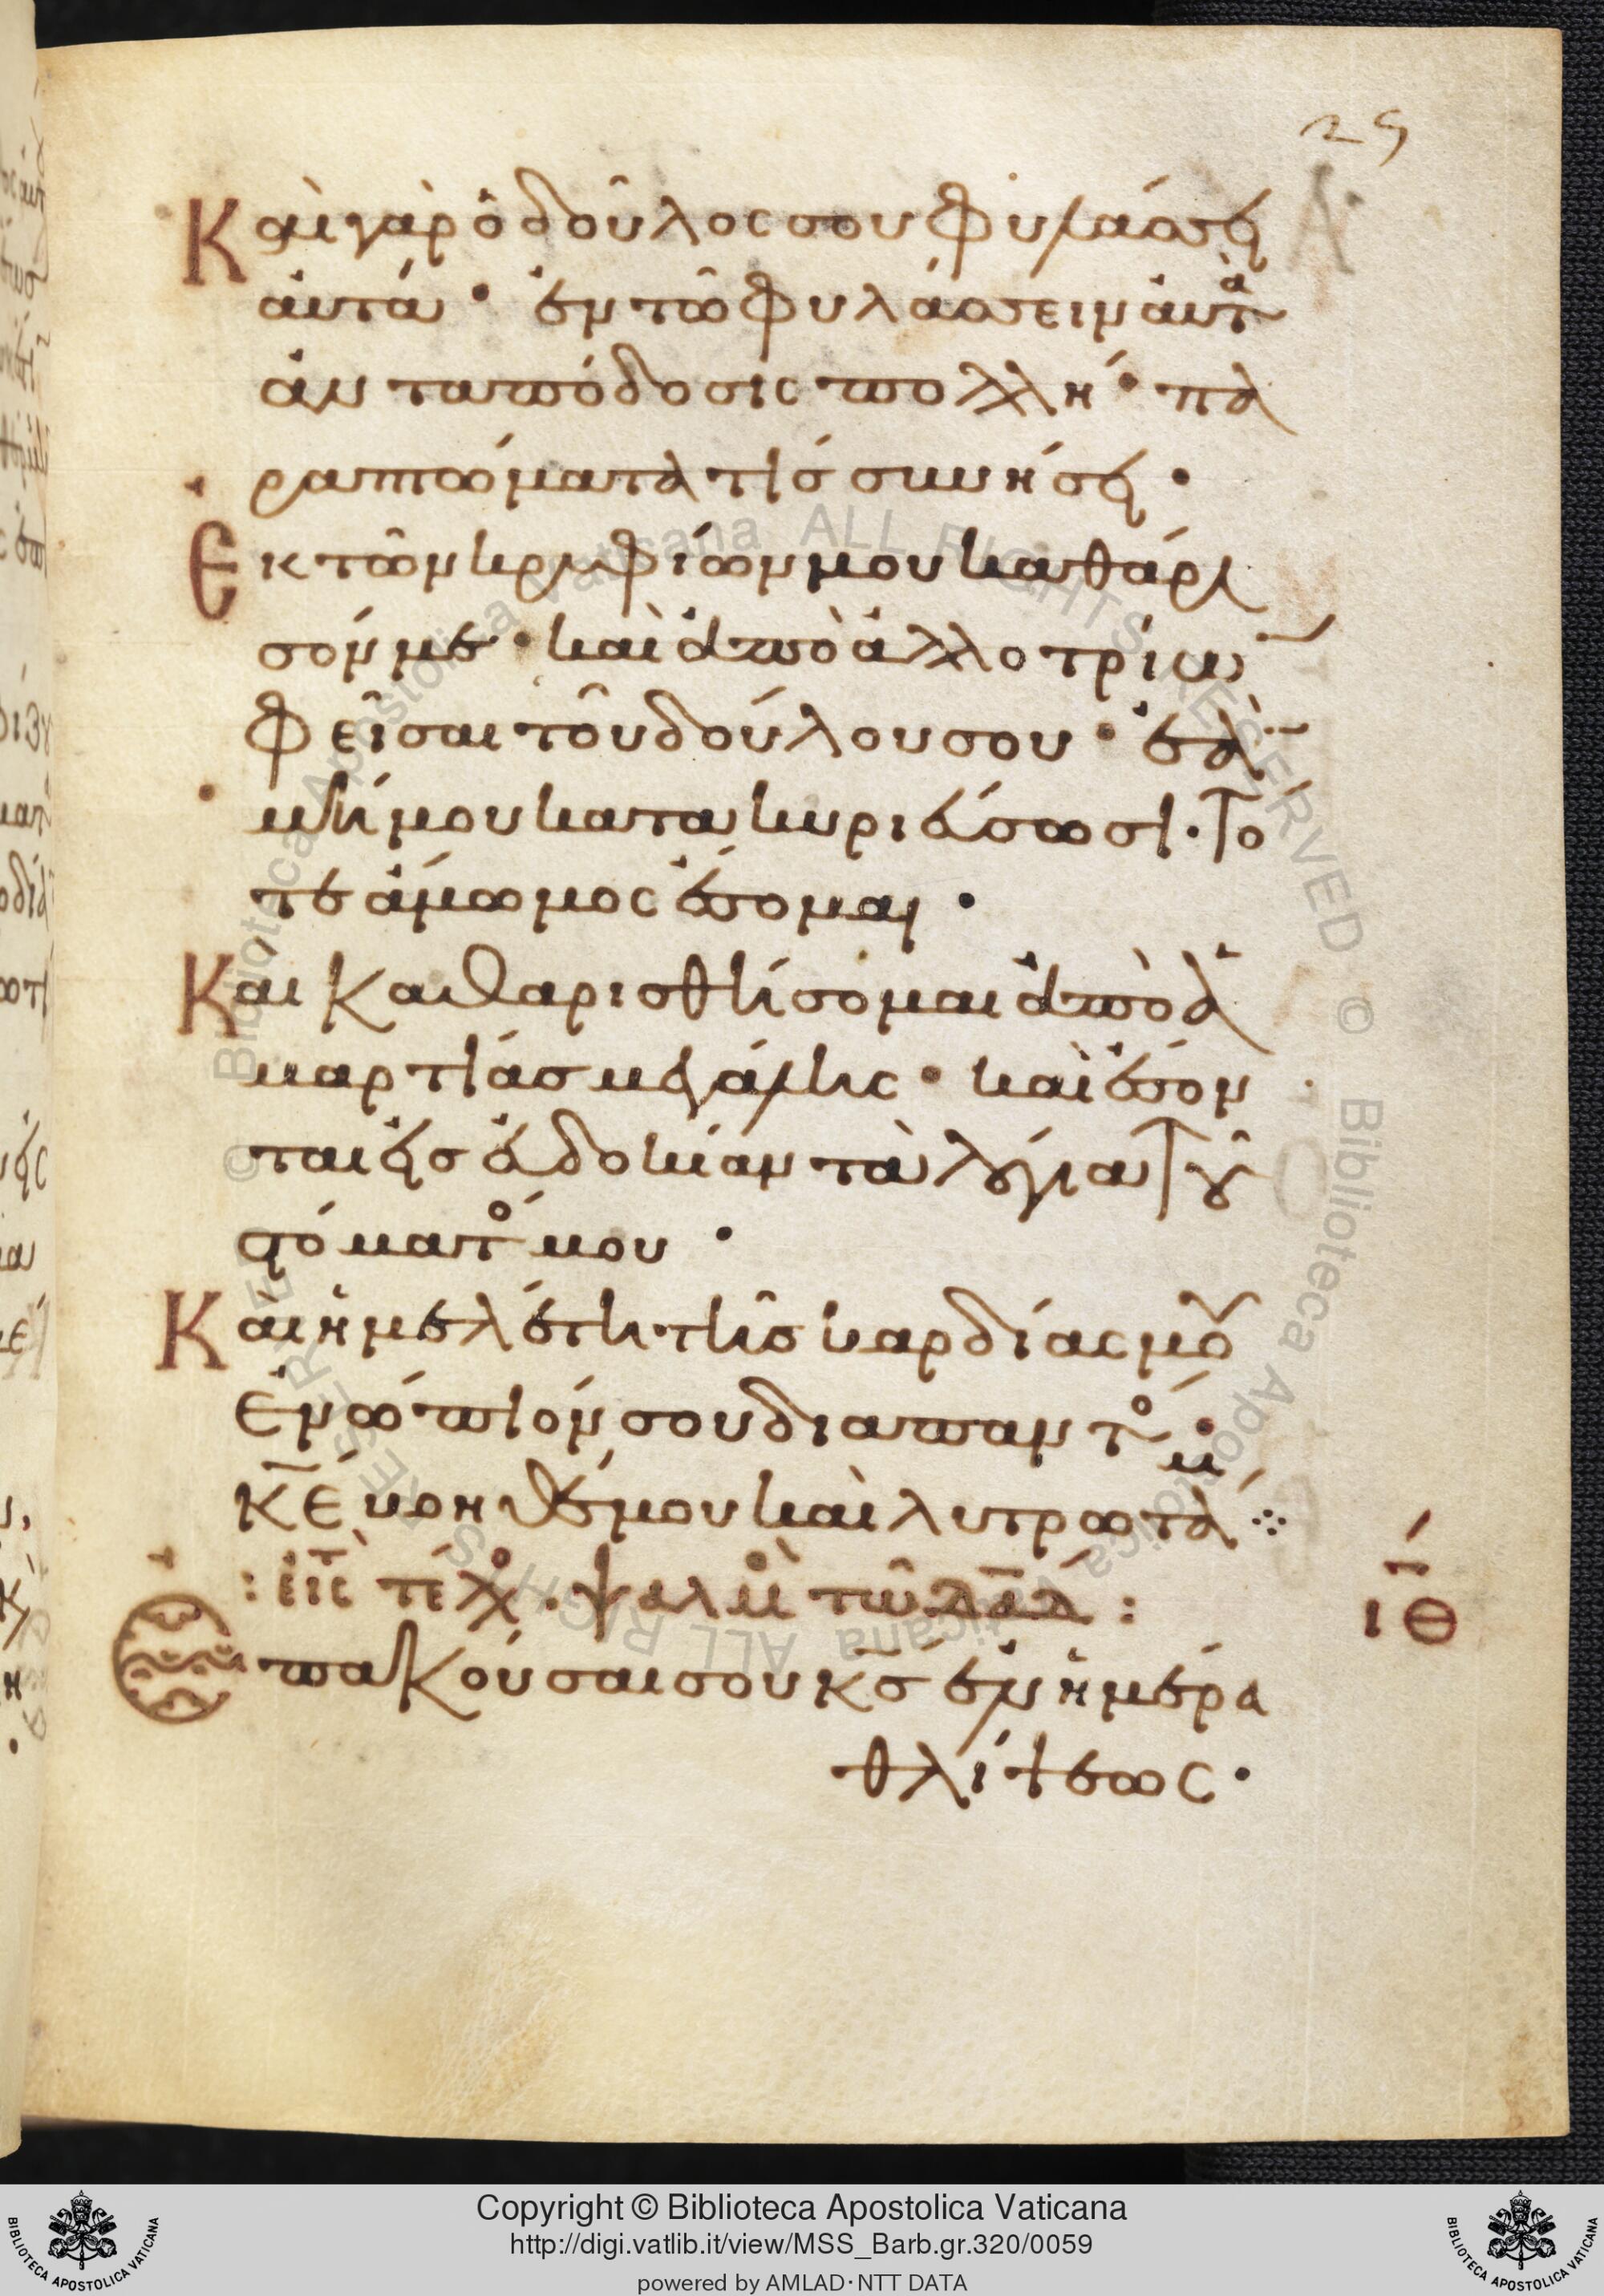 25
Καὶ γὰρ ὁ δοῦλος σου φυλάσσει
αὐτά · ἐν τῶ φυλάσσειν αὐτὰ
ἀνταπόδοσις πολλή · πα
ραπτώματα τίς συνήσει ·
Ἐκ τῶν κρυφίων μου καθάρι
σόν με · καὶ ἀπὸ ἀλλοτρίω
φεῖσαι τοῦ δούλου σου · ἐὰν
μή μου κατακυριεύσωσι · Τό
τε ἄμωμος ἔσομαι ·
Καὶ καθαρισθήσομαι ἀπὸ ἁ
μαρτίας μεγάλης · καὶ ἔσον
ται εἰς εὐδοκίαν τὰ λόγια τοῦ
στόματός μου ·
Καὶ ἡ μελέτη τῆς καρδίας μου
Ἐνώπιόν σου διαπαντός ·
κ̅ε̅ βοηθέ μου καὶ λυτρωτά μ ⁘
: εἰς τὸ τέλος · ψαλμὸς τῶ δα̅δ̅ :
ι̅θ̅
Ἐπακούσαι σου κ̅ς̅ ἐν ἡμέρα
θλίψεως ·
Copyright © Biblioteca Apostolica Vaticana
http://digi.vatlib.it/view/MSS_Barb.gr.320/0059
powered by AMLAD·NTT DATA